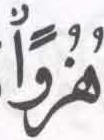 هُزُوًا